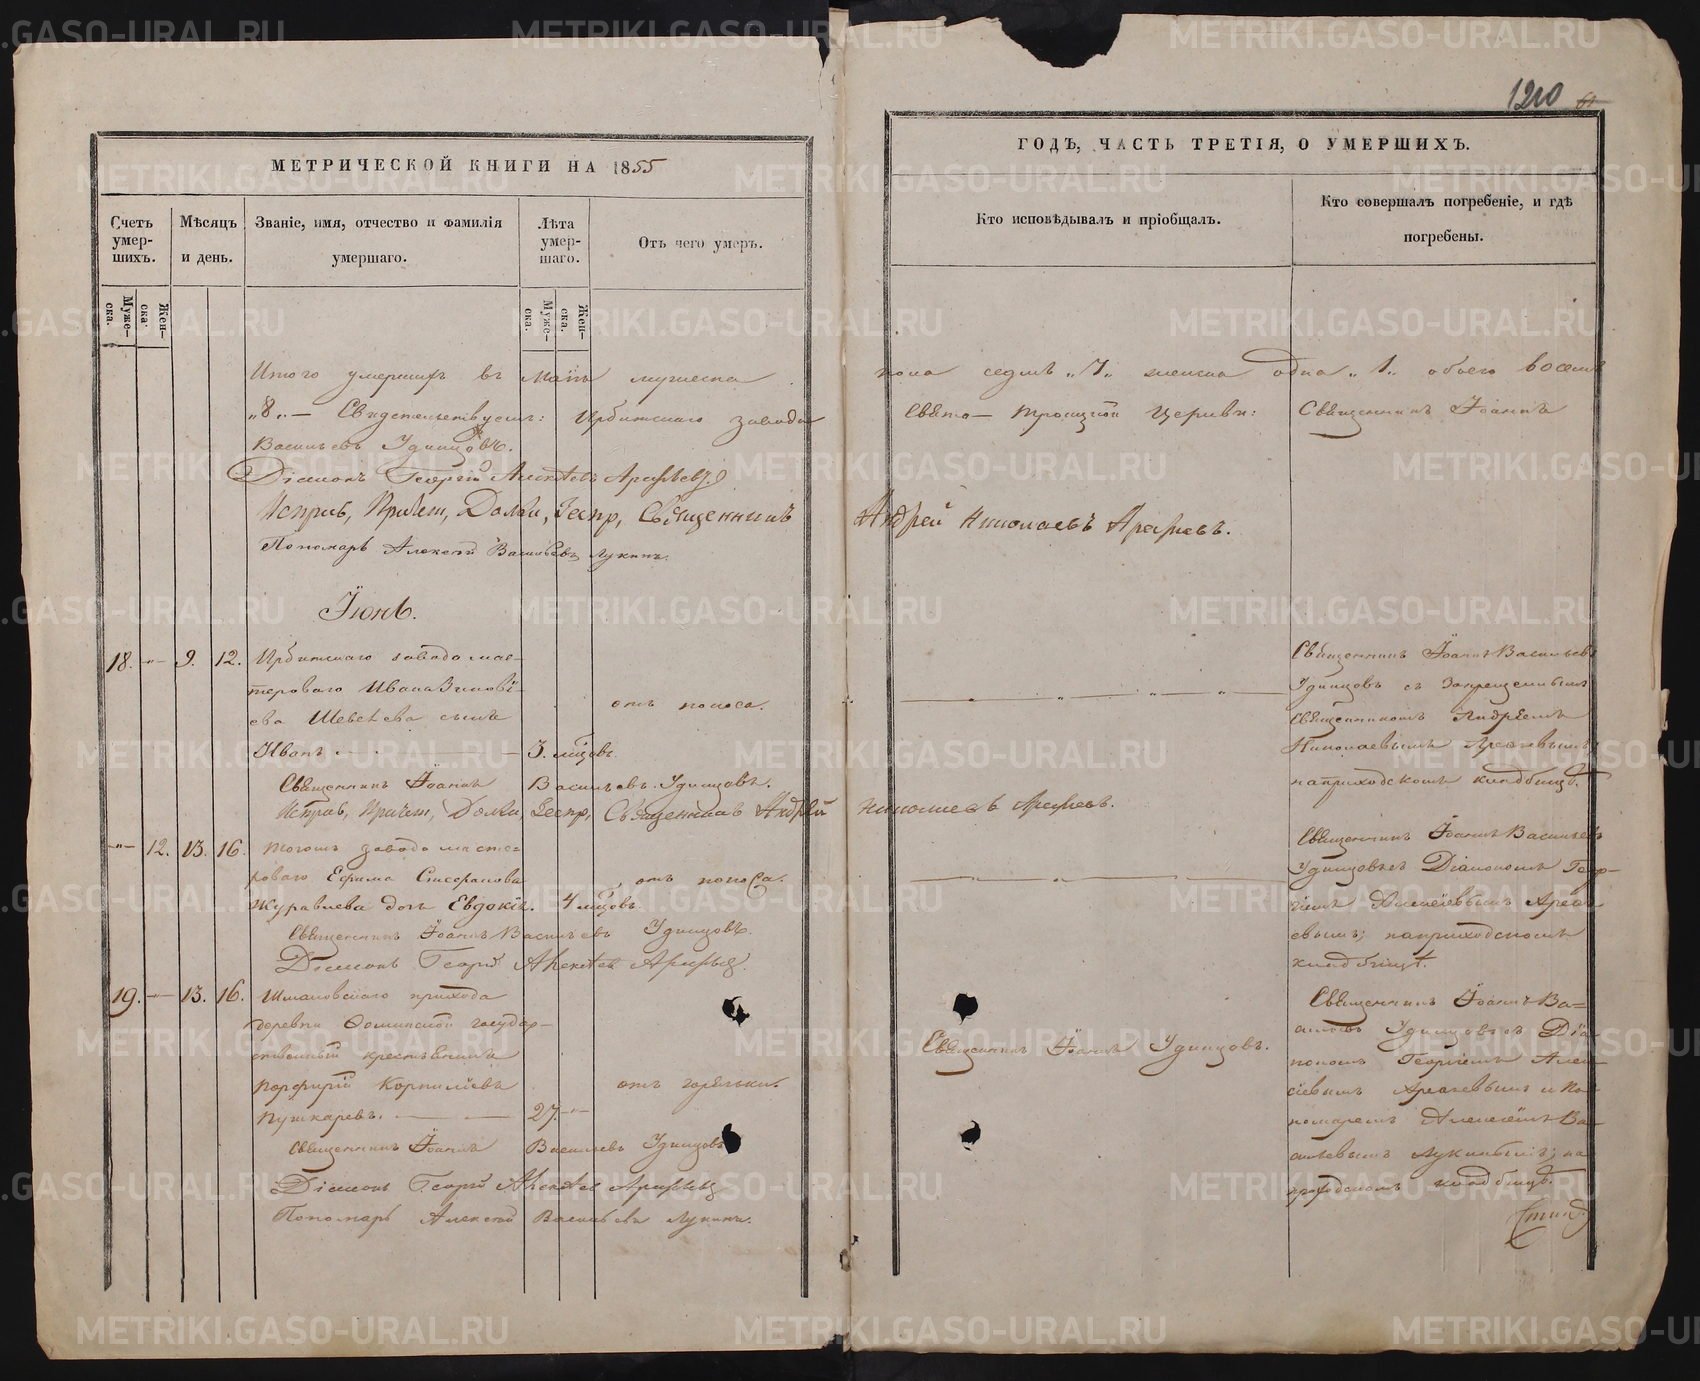 1210
МЕТРИЧЕСКОЙ КНИГИ НА 1855
ГОДЪ, ЧАСТЬ ТРЕТІЯ, О УМЕРШИХЪ.
Счетъ умер-шихъ.
Мѣсяцъ и день.
Званіе, имя, отчество и фамилія умершаго.
Лѣта умер-шаго.
Отъ чего умеръ.
Кто исповѣдывалъ и пріобщалъ.
Кто совершалъ погребеніе, и гдѣ погребены.
Муже-ска.
Жен-ска.
Муже-ска.
Жен-ска.
Итого умершихъ въ Маіѣ мужеска пола седмь „7„ женска одна „1„ обоего восемь
„8„ — Свидетельствуемъ: Ирбитскаго завода Свято-Троицкой Церкви: Священникъ Іоаннъ
Васильевъ Удинцовъ.
Діаконъ Георгій Алексѣевъ Арефьевъ
Священникъ Андрей Николаевъ Арефьевъ.
Пономарь Алексѣй Васильевъ Лукинъ.
Іюнь.
18. 9. 12. Ирбитскаго завода мас-
тероваго Ивана Зиновь-
ева Шевелева сынъ
Иванъ 3. мѣсцовъ.
отъ поноса.
Священникъ Іоаннъ Васильевъ
Удинцовъ съ Запрещеннымъ
Священникомъ Андреемъ
Николаевымъ Арефьевымъ
на приходскомъ кладбищѣ.
Священникъ Іоаннъ Васильевъ Удинцовъ.
Священникъ Андрей Николаевъ Арефьевъ.
12. 13. 16. Тогожъ завода масте-
роваго Ефима
Журавлева дочь Евдокія. 4 мѣсцовъ.
отъ поноса.
Священникъ Іоаннъ Васильевъ
Удинцовъ съ Діакономъ Геор-
гіемъ Алексѣевымъ Арефь-
евымъ; на приходскомъ
кладбищѣ.
Священникъ Іоаннъ Васильевъ Удинцовъ.
Діаконъ Георгій Алексѣевъ Арефьевъ.
19. 13. 16. Шмаковскаго прихода
деревни Фоминской государ-
ственный крестьянинъ
Порфирій Корниліевъ
Пушкаревъ. 27.
отъ горячки.
Священникъ Іоаннъ Удинцовъ.
Священникъ Іоаннъ Ва-
сильевъ Удинцовъ съ Діа-
кономъ Георгіемъ Алек-
сѣевымъ Арефьевымъ и По-
номаремъ Алексѣемъ Ва-
сильевымъ Лукинымъ; на
приходскомъ кладбищѣ.
Священникъ Іоаннъ Васильевъ Удинцовъ
Діаконъ Георгій Алексѣевъ Арефьевъ
Пономарь Алексѣй Васильевъ Лукинъ.
METRIKI.GASO-URAL.RU